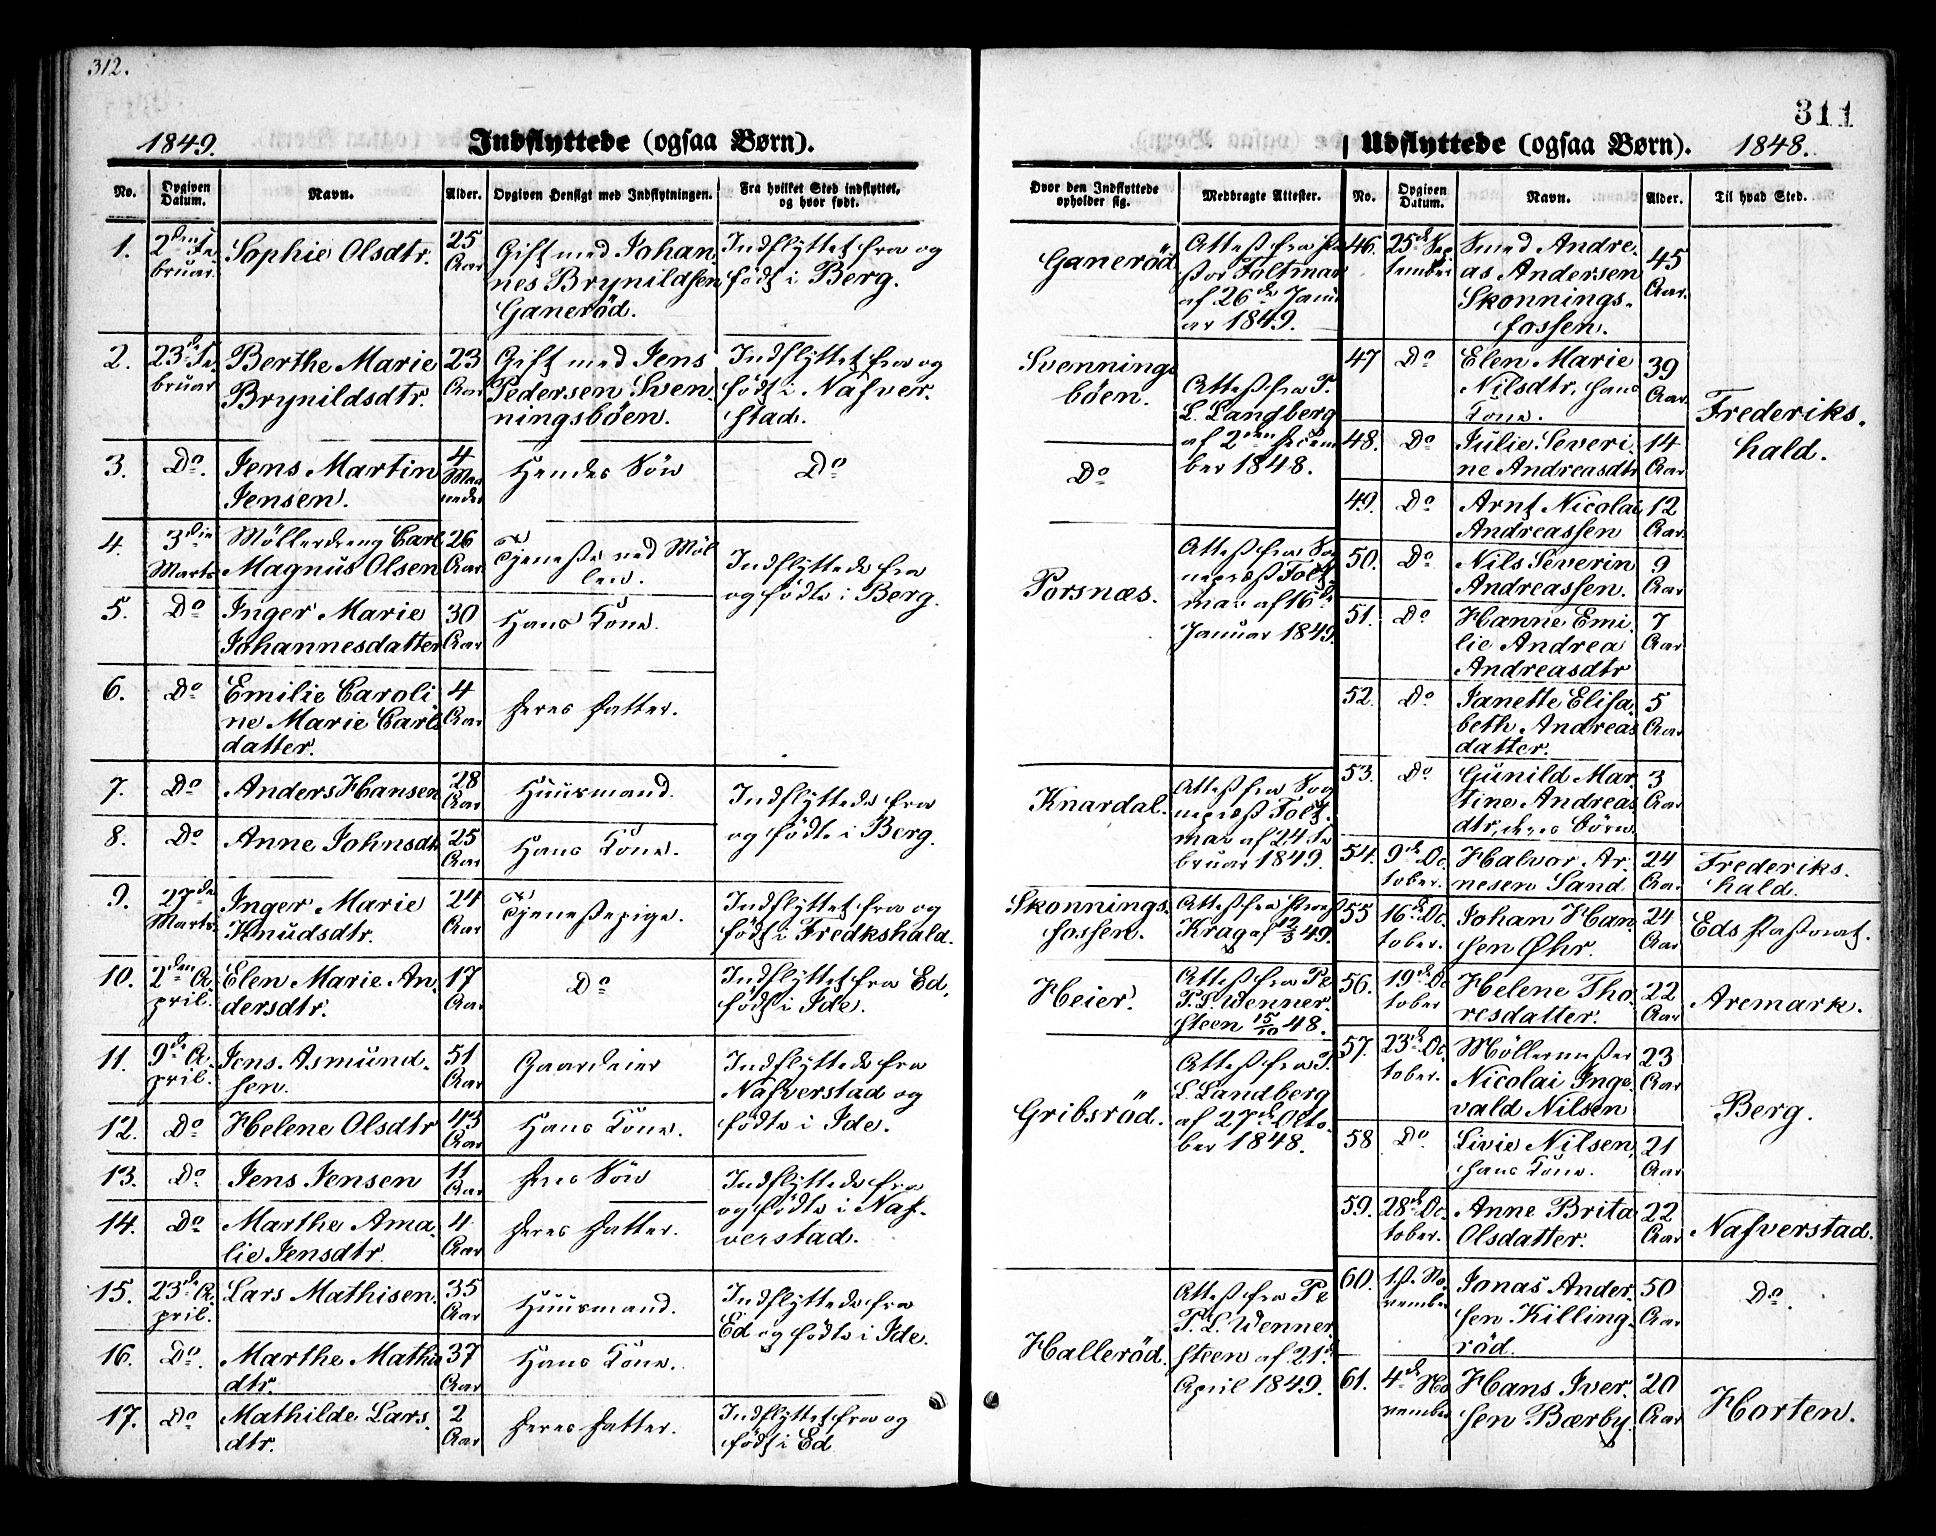 312.
311
1849.
Indflyttede (ogsaa Børn).
No.
Opgiven Datum.
Navn.
Alder.
Opgiven Hensigt med Indflytningen.
Fra hvilket Sted indflyttet, og hvor født.
Hvor den Indflyttede opholder sig.
Medbragte Attester.
1. 2den Februar Sophie Olsdtr. 25 Aar
Gift med Johannes Brynildsen Ganeröd.
Indflyttet fra og født i Berg.
Ganeröd
Attest fra Pastor Foltmar af 26de Januar 1849.
2. 23de Februar Berthe Marie Brynildsdtr. 23 Aar
Gift med Jens Pedersen Svenningsböen.
Indflyttet fra og født i Nafverstad.
Svenningsböen.
Attest fra P. L. Landberg af 2den Decem ber 1848.
3. Do. Jens Martin Jensen. 4 Maaneder
Hendes Sön
Do
Do
4. 3die Marts Möllerdreng Carl Magnus Olsen 26 Aar.
Tjeneste ved Möllen.
Indflyttede fra og födte i Berg.
Porsnæs.
Attest fra Sognepræst Foltmar af 16de Januar 1849.
5. Do Inger Marie Johannesdatter 30 Aar
Hans Kone.
6. Do Emilie Caroline Marie Carlsdatter. 4 Aar
Deres Datter.
7. Do Anders Hansen 28 Aar
Huusmand.
Indflyttede fra og födte i Berg.
Knardal.
Attest fra Sognepræst Foltmar af 24 Februar 1849.
8. Do Anne Johnsdtr 25 Aar
Hans Kone.
9. 27de Marts. Inger Marie Knudsdtr. 24 Aar
Tjenestepige.
Indflyttet fra og født i Fredkshald.
Skonningsfossen.
Attest fra Provst Krag af 12/3 49.
10. 2den April. Elen Marie Andersdtr. 17 Aar
Do
Indflyttet fra Ed, født i Ide.
Heier.
Attest fra Pe P. L. Wennersteen 15/10 48.
11. 9de April. Jens Asmundsen. 51 Aar
Gaardeier
Indflyttede fra Nafverstad og födte i Ide.
Gribsröd.
Attest fra P. L. Landberg af 27de October 1848.
12. Do Helene Olsdtr 43 Aar
Hans Kone.
13. Do Jens Jensen 11 Aar
Deres Sön
Indflyttede fra og födte i Nafverstad.
14. Do Marthe Amalie Jensdtr. 4 Aar
Deres Datter.
15. 23de April. Lars Mathisen. 35 Aar
Huusmand.
Indflyttede fra Ed og födte i Ide.
Halleröd.
Attest fra Pe P. L. Wennersteen af 21de April 1849.
16. Do. Marthe Mathisdtr. 37 Aar
Hans Kone.
17. Do Mathilde Larsdtr. 2 Aar
Deres Datter.
Indflyttet fra og født i Ed
Udflyttede (ogsaa Børn).
1848.
No.
Opgiven Datum.
Navn.
Alder.
Til hvad Sted.
46. 25de September Smed Andreas Andersen Skonningsfossen. 45 Aar.
47 Do Elen Marie Nilsdtr, hans Kone. 39 Aar.
Frederikshald.
48. Do Julie Severine Andreasdtr 14 Aar.
49. Do Arnt Nicolai Andreassen 12 Aar.
50. Do Nils Severin Andreassen. 9 Aar
51. Do Hanne Emilie Andrea Andreasdtr 7 Aar
52. Do Janette Elisabeth Andreasdatter. 5 Aar
53. Do Gunild Martine Andreasdtr, deres Börn. 3 Aar
54. 9de October. Halvor Arnesen Sand 24 Aar
Frederikshald.
55 16de October. Johan Hansen Øhr. 24 Aar
Eds Pastorat.
56. 19de October Helene Thoresdatter. 22 Aar
Aremark.
57. 23de October. Möllermester Nicolai Ingevald Nilsen 23 Aar
Berg.
58 Do Livie Nilsen, hans Kone. 21 Aar
59. 28de October. Anne Brita Olsdatter. 22 Aar
Nafverstad.
60. 1st. November Jonas Andersen Killingröd. 50 Aar
Do.
61. 4de November Hans Iversen Bærby. 20 Aar
Horten.